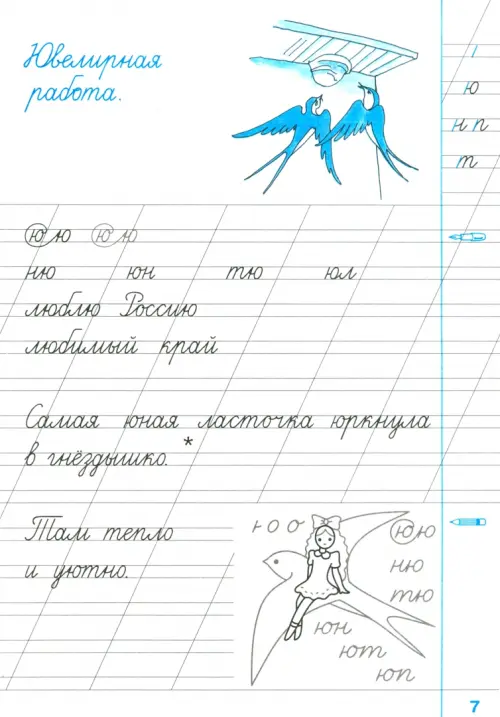 Ювелирная
работа.
ı
ю
н п
т
ю ю ю ю
ню юн тю юл
люблю Россию
любимый край
Самая юная ласточка юркнула
в гнёздышко.*
Там тепло
и уютно.
ю ю
ню
тю
юн
ют
юп
7